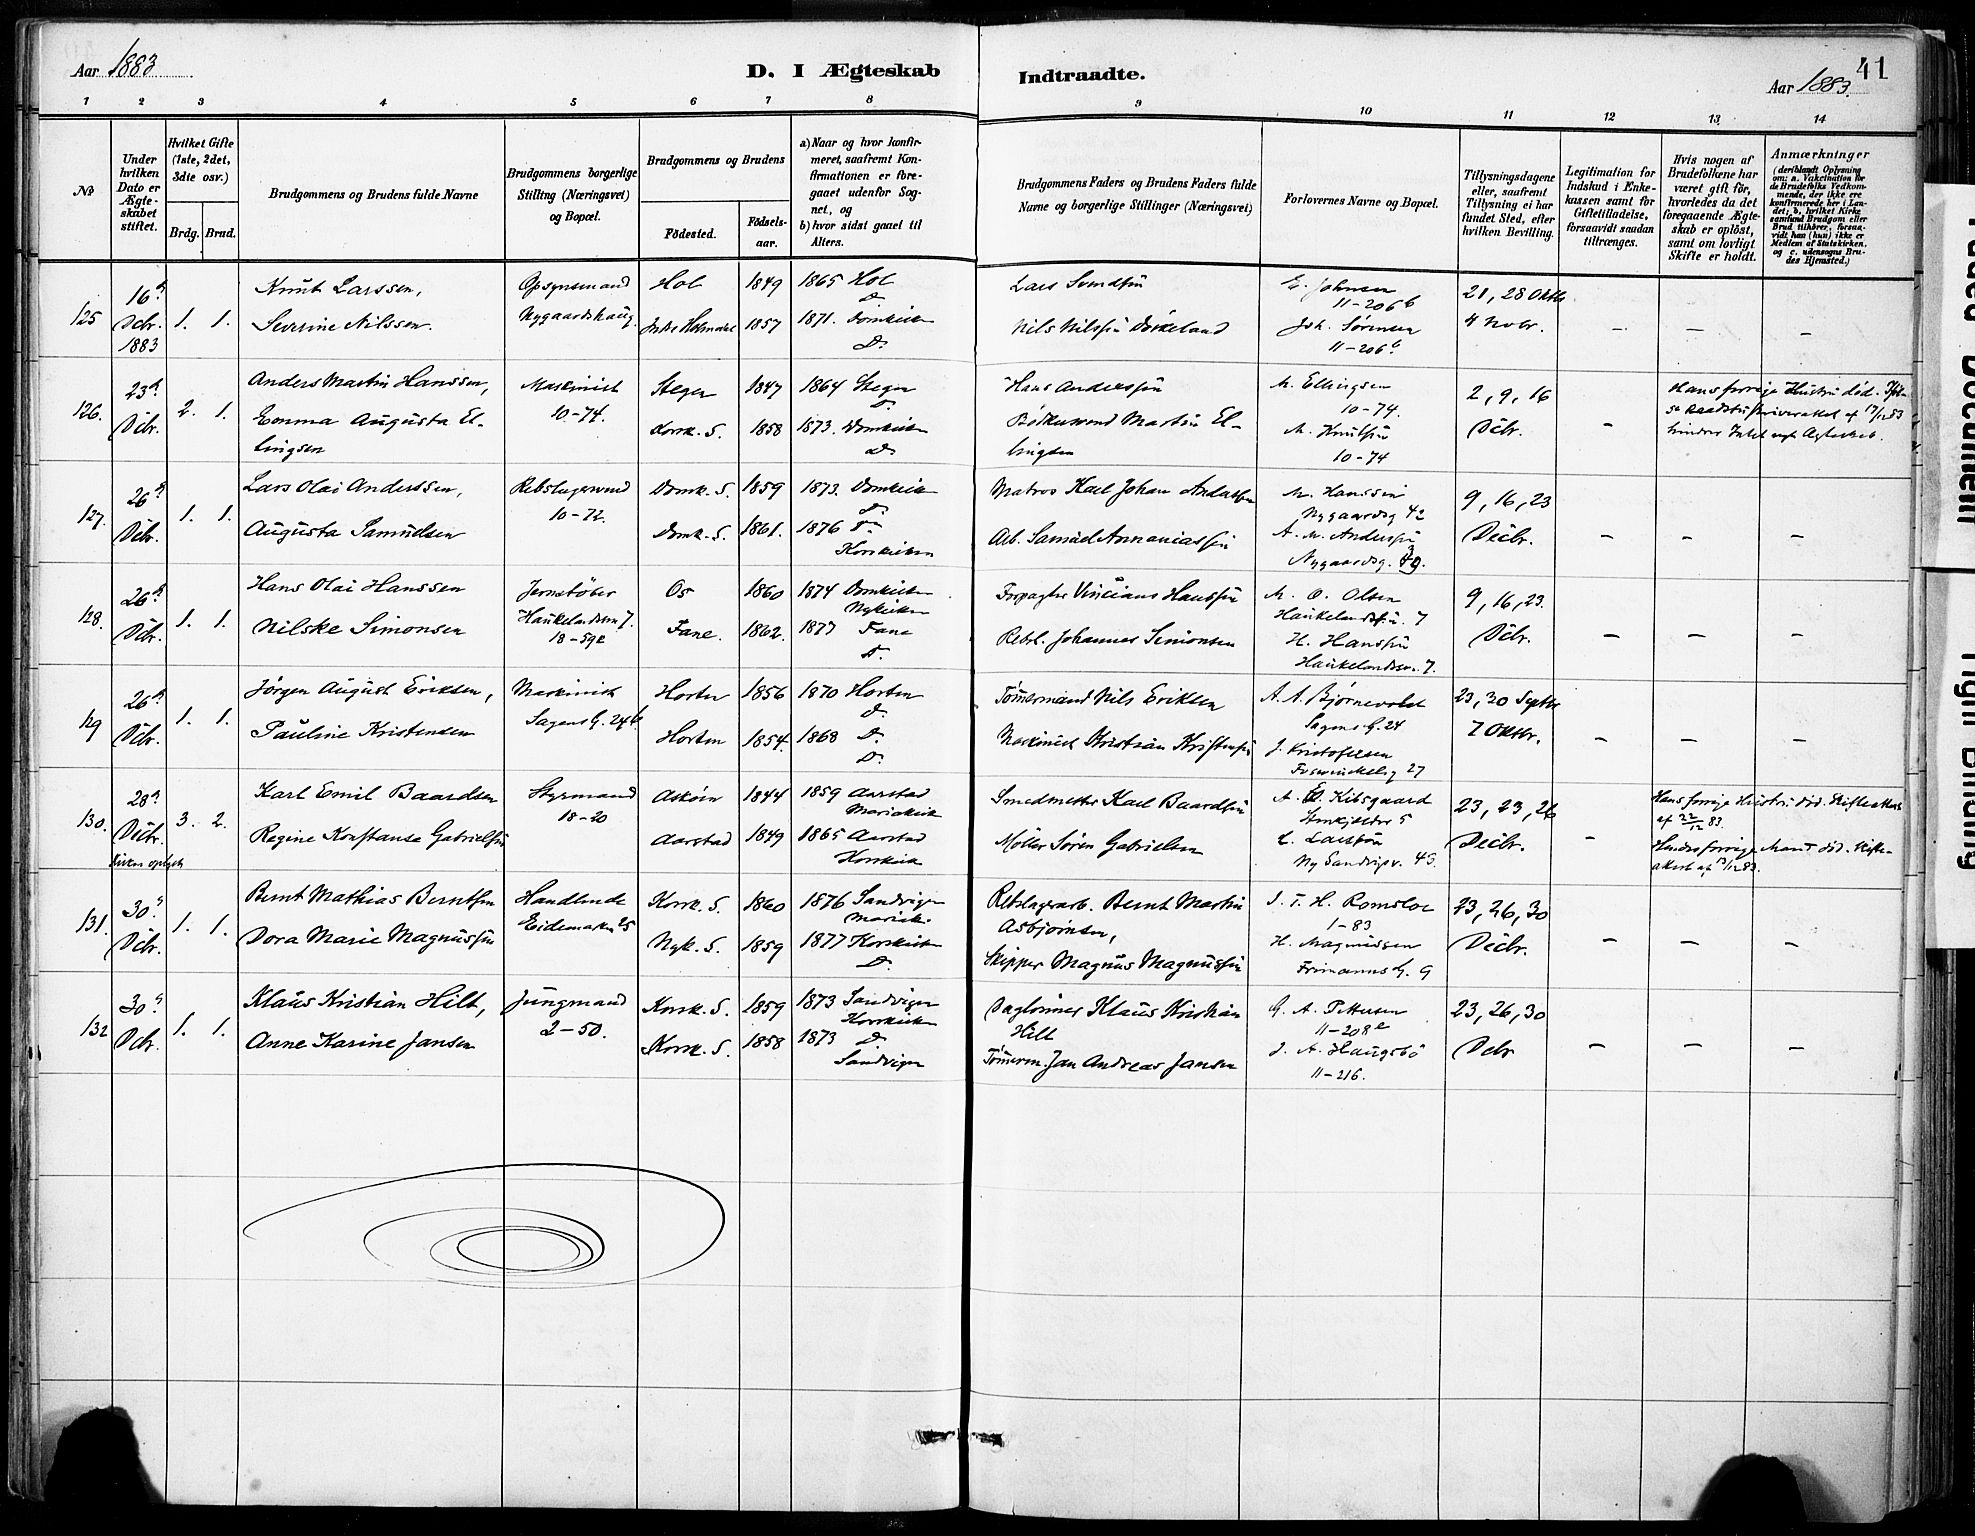 Aar 1883
D. I Ægteskab Indtraadte.
Aar 1883.
41
1 2 3 4 5 6 7 8 9 10 11 12 13 14
No
Under hvilken Dato er Ægteskabet stiftet.
Hvilket Gifte (1ste, 2det, 3die osv.)
Brdg. Brud.
Brudgommens og Brudens fulde Navne
Brudgommens borgerlige Stilling (Næringsvei) og Bopæl.
Brudgommens og Brudens
Fødested.
Fødsels-aar.
a) Naar og hvor konfir-
meret, saafremt Kon-
firmationen er fore-
gaaet udenfor Sog-
net, og
b) hvor sidst gaaet til
Alters.
Brudgommens Faders og Brudens Faders fulde
Navne og borgerlige Stillinger (Næringsvei)
Forlovernes Navne og Bopæl.
Tillysningsdagene
eller, saafremt
Tillysning ei har
fundet Sted, efter
hvilken Bevilling.
Legitimation for
Indskud i Enke-
kassen samt for
Giftetilladelse,
forsaavidt saadan
tiltrænges.
Hvis nogen af
Brudefolkene har
været gift før,
hvorledes da det
foregaaende Ægte-
skab er opløst,
samt om lovligt
Skifte er holdt.
Anmærkninger
(deriblandt Oplysning
om: a. Vakcination for
de Brudefolks Vedkom-
mende, der ikke ere
konfirmerede her i Lan-
det; b, hvilket Kirke-
samfund Brudgom eller
Brud tilhører, forsaa-
vidt han (hun) ikke er
Medlem af Statskirken.
og c. udensogns Bru-
des Hjemsted.)
125 16de Dcbr. 1883 1. 1.
Knut Larssen, Opsynsmand Hol 1849 1865 Hol
Do
Severine Nilssen. Nygaardshaug. Indre Holmedal 1857 1871. Domkirken
Do
Lars Svendsen
Nils Nilssen
E. Johnsen
11-206b
Joh. Sørensen
11-206b.
21, 28 Oktbr
4 Novbr.
126. 23de Dcbr. 2. 1.
Anders Martin Hanssen, Maskinist Steger 1847 1864 Steger
10-74. Do
Emma Augusta El-
lingsen Korsk. S. 1858 1873. Domkirken
Do
Hans Anderssen
Bødkersvend Martin El-
lingsen
M. Ellingsen
10-74.
M. Knutsen
10-74
2, 9, 16
Dcbr.
Hans forrige Hustru død.
af 17/12 83
127. 26de Dcbr. 1. 1.
Lars Olai Anderssen, Rebslagersvend Domk. S. 1859 1873. Domkirk
10-72. Do
Augusta Samuelsen Domk. S. 1861. 1876 Do
Korskirken
Matros Karl Johan Anderssen
Arb. Samuel Annaniassen
M. Hanssen
Nygaardsg 42
A. M. Anderssen
Nygaardsg.
9, 16, 23
Decbr.
128. 26de Dcbr. 1. 1.
Hans Olai Hanssen Jernstøber Os 1860 1874 Domkirken
Haukelandsvn 7. Nykirken
18-59e
Nilske Simonsen Fane. 1862. 1877 Fane
Do.
Forpagter Vincians Hanssen
Rebsl. Johannes Simonsen
M. O. Olsen
7
H. Hanssen
Haukelandsv. 7.
9, 16, 23.
Dcbr.
129 26de Dcbr. 1. 1.
Jørgen August Eriksen, Maskinist Horten 1856 1870 Horten
Sagens G. 24b Do.
Pauline Kristensen Horten 1854. 1868 Do.
Do.
Tømmermand Nils Eriksen
Maskinist Kristian Kristensen
A. A. Bjørnevold
Sagens G. 24
J. Kristofersen
27
23, 30 Septbr
7 Oktbr.
130. 28de Decbr. 3. 2.
Karl Emil Baardsen Styrmand Askøen 1844 1859 Aarstad
18-20 Mariakirk
Regine Konstanse Gabrielsen Aarstad 1849 1865 Aarstad
Korskirk
Smedmester Karl Baardsen
Møller Søren Gabrielsen
A. Kibsgaard
5
Ny Sandvigsv. 43.
23, 23, 26
Decbr.
Hans forrige Hustru død. Skifteattest
af 22/12 83.
Hendes forrige Mand død. Skifte-
attest af 13/12 83.
131. 30te Dcbr. 1. 1.
Bernt Mathias Berntsen Handlende Korsk. S. 1860 1876 Sandvigen
Eidemarken 25 Mariak.
Dora Marie Magnussen Nyk. S. 1859 1877 Korskirken
Do.
Rebslagerarb. Bernt Martin
Asbjørnsen,
Skipper Magnus Magnussen
J. T. H. Romsloe
1-83
H. Magnussen
Frimanns G. 9
23, 26, 30
Decbr.
132 30te Dcbr. 1. 1.
Klaus Kristian Hilt, Jungmand Korsk. S. 1859 1873 Sandvigen
2-50. Korskirken
Anne Karine Jansen Korsk. S. 1858 1873 Do
Sandvigen
Dagløinner Klaus Kristian
Hilt
Tømmerm. Jan Andreas Jansen
G. A. Pettersen
11-208e
J. A. Haugsbø
11-216.
23, 26, 30
Dcbr